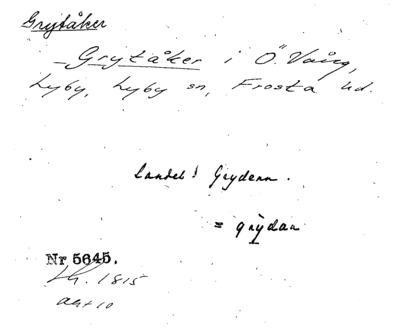 Grytåker
— Grytåker i Ö. Vång,
Lyby, Lyby sn, Frosta hd.
Landel! Grydenn.
= grydan
Nr 5645.
Lh. 1815
akt 10